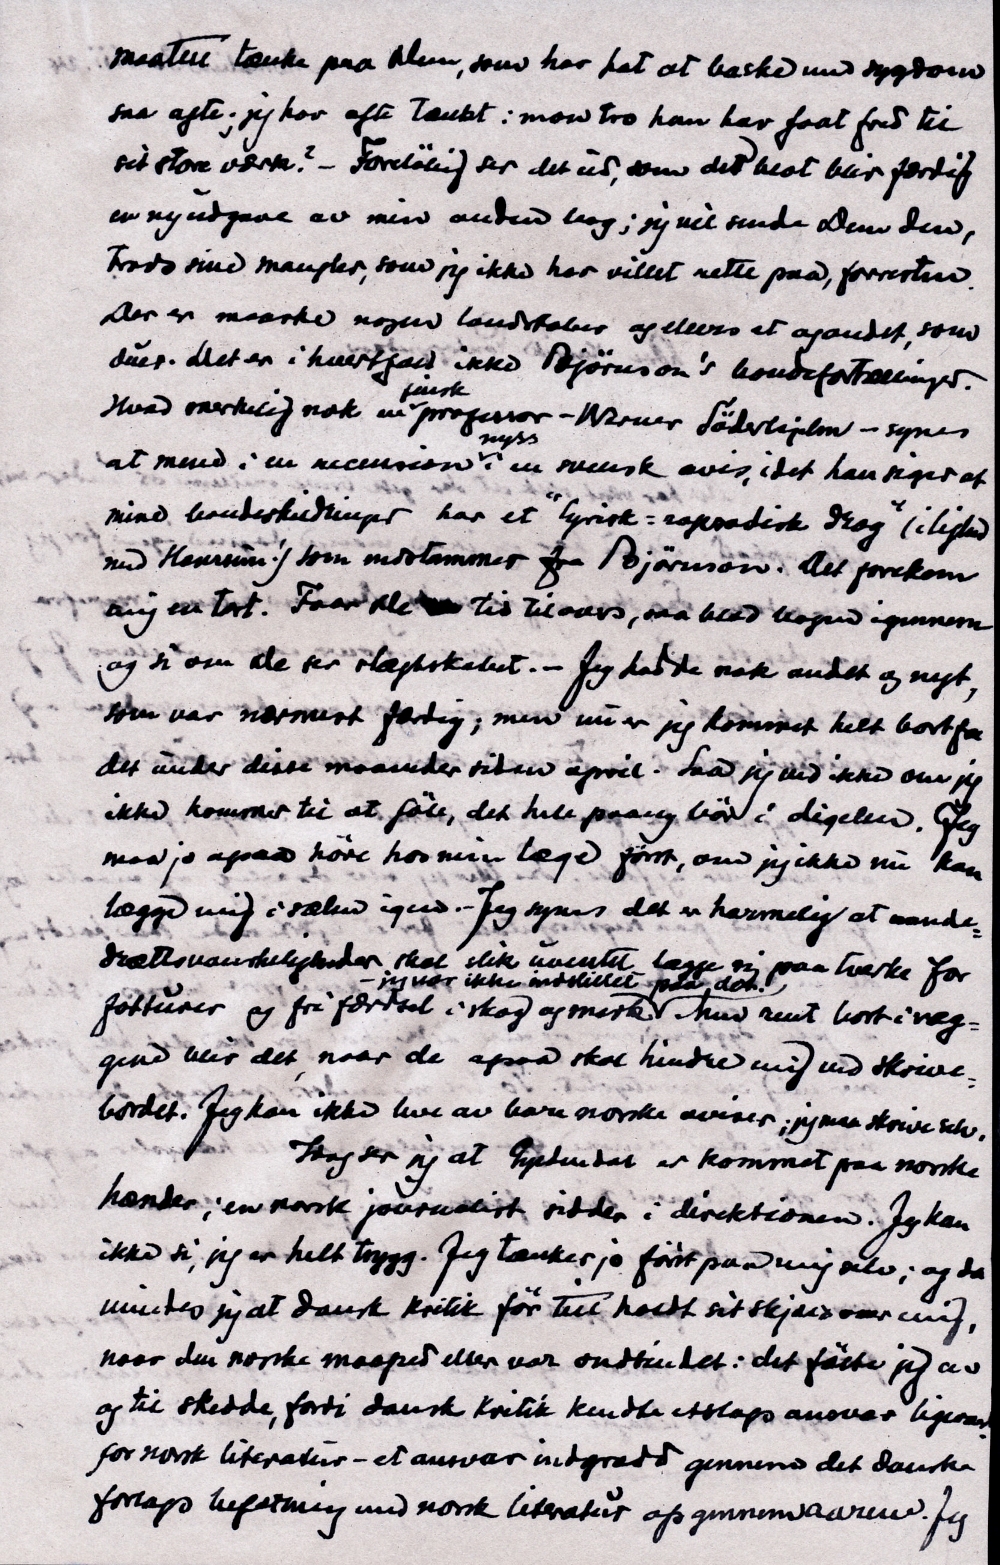 maatte tænke paa Dem, som har hat at baske med sygdom
saa ofte; jeg har ofte tænkt: mon tro han har faat fred til
sit store værk? – Foreløbig ser det ud, som det blot blir færdig
en ny utgave av min anden bog; jeg vil sende Dem den,
trods sine mangler, som jeg ikke har villet rette paa, forresten.
Der er maaske nogen landskaber og elvers et og andet, som
duer. Det er i hvertfald ikke Björnson's bondefortællinger.
Hvad merkelig nok en finsk professor – Werner Söderhjelm – synes
at mene i en recension nyss i en svensk avis, idet han siger at
mine bondeskildringer har et "lyrisk=rapsodisk drag" (i lighed
med Hamsun!) som nedstammer fra Björnson. Det forekom
mig en tort. Faar De tid tilovers, saa blad bogen igjennem
og si om De ser slægtskabet. – Jeg hadde nok andet og nyt,
som var nærmest færdig; men nu er jeg kommet helt bort fra
det under disse maaneder siden april. Saa jeg ved ikke om jeg
ikke kommer til at føle, det hele paany bør i digelen. Jeg
maa jo ogsaa höre hos min læge først, om jeg ikke nu kan
lægge mig i sælen igen. – Jeg synes det er harmelig at aande=
drætsvanskeligheder skal slik uventet lægge sig paa tværke for
fotturer og fri færdsel i skog og mark – jeg var ikke indstillet paa det! Men rent bort i væg=
gene blir det, naar de ogsaa skal hindre mig ved skrive=
bordet. Jeg kan ikke leve av bare norske aviser; jeg maa skrive selv.
Idag ser jeg at Gyldendal er kommet paa norske
hænder; en norsk journalist sidder i direktionen. Jeg kan
ikke si, jeg er helt trygg. Jeg tænker jo først paa mig selv; og da
mindes jeg at dansk kritik før til holdt sit skjold over mig,
naar den norske maaped eller var ondsindet: det følte jeg av
og til skedde, fordi dansk kritik kendte etslags ansvar ligeoverfor
for norsk literatur – et ansvar indgrodd gennem det danske
forlags befatning med norsk literatur op gennem aarene. Jeg